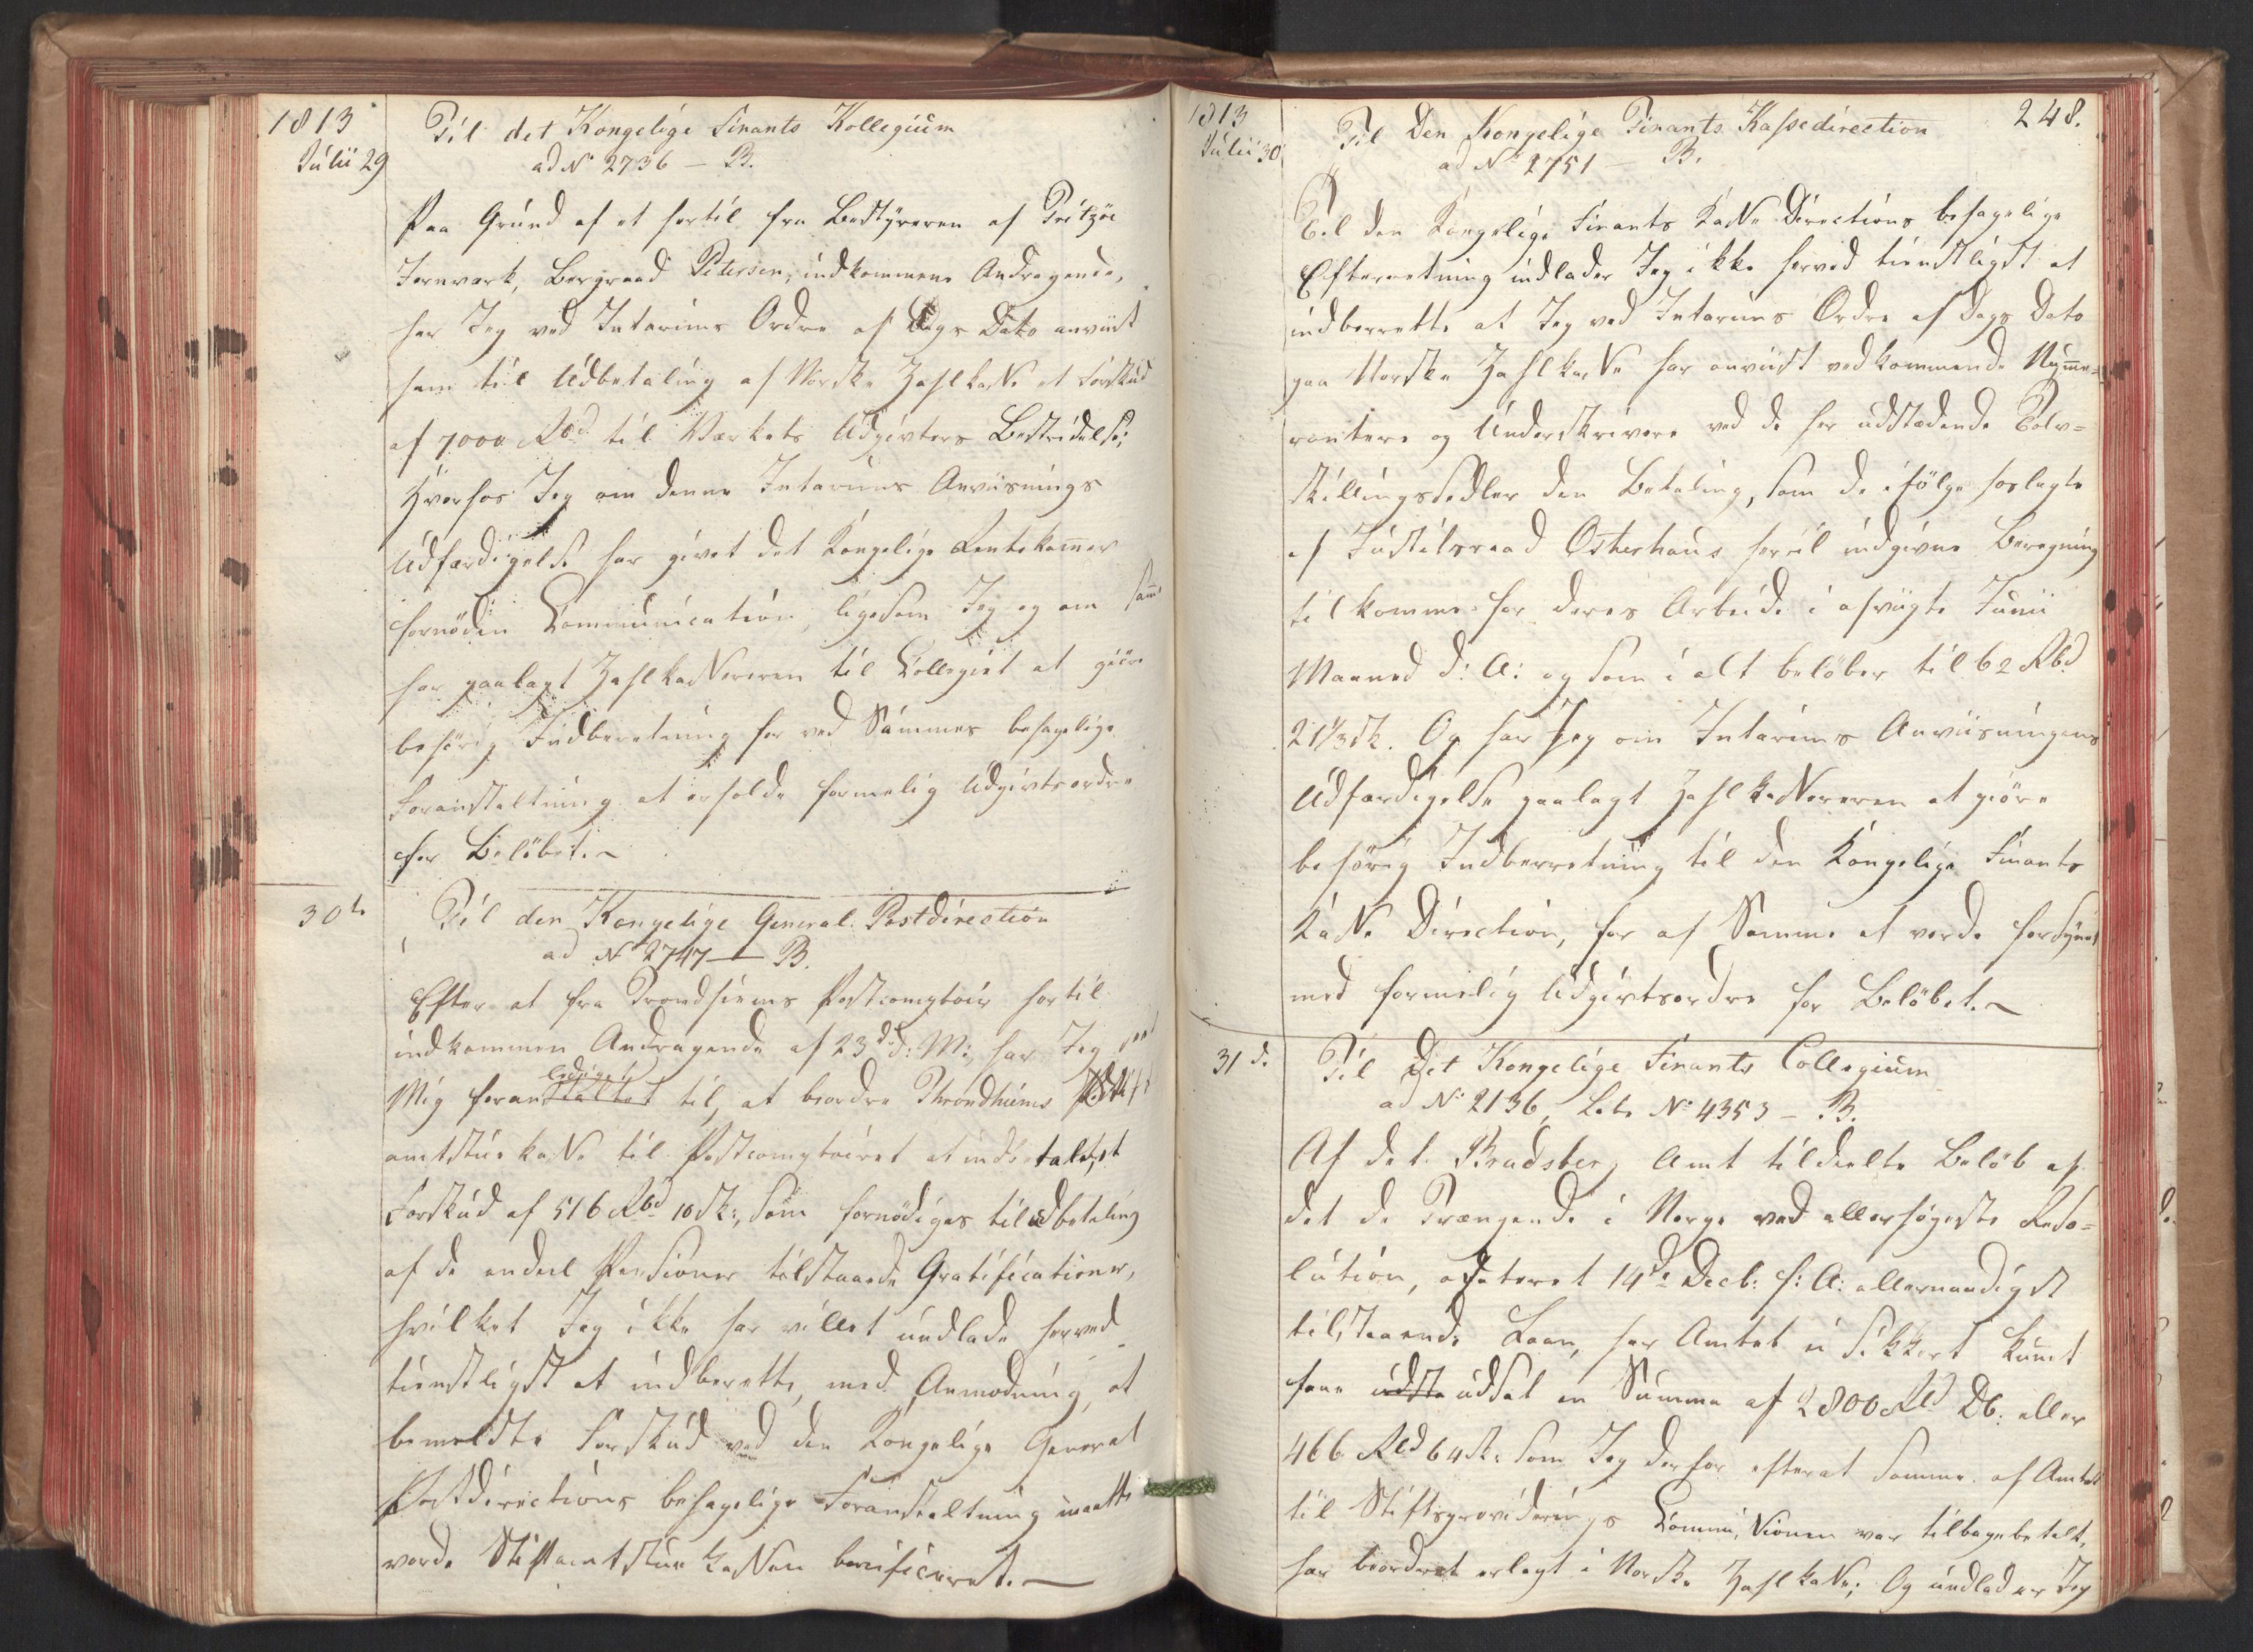 1813
Julii 29
Til det Kongelige Finants Kollegium
ad No 2736 – B.
Paa Grund af et hertil fra Bestyreren af Fritzöe
Jernværk, Bergraad Petersen, indkommene Andragende,
har Jeg ved Interims Ordre af Dags Dato anviist
ham til Udbetaling af Norske Zahlkasse et Forskud
af 7000 Rbd til Værkets Udgivters Bestridelse;
Hvorhos Jeg om denne Interims Anviisnings
Udfærdigelse har givet det Kongelige Rentekamer
fornöden Communication, ligesom Jeg og om sam̄e
har paalagt Zahlkassereren til Collegiet at giöre
behörig Indberetning for ved Sammes behagelige
Foranstaltning at erholde formelig Udgivtsordre
for Belöbet.
30te
Til den Kongelige General-Postdirection
ad No 2747 – B.
Efter et fra Trondhiems Postcomptoir hertil
indkommen Andragende af 23de d: M:, har Jeg seet
lediget
Mig foranstaltet til, at beordre Throndhiems Stift
amtstuekasse til Postcomptoiret at indbetale, et
Forskud af 516 Rbd 10 sk:, som fornödiges til udbetaling
af de endeel Pensioner tilstaaede Gratificationer,
hvilket Jeg ikke har villet undlade herved
tienstligst at indberette, med Anmodning, at
bemeldte Forskud ved den Kongelige General
Postdirections behagelige Foranstaltning maatte
vorde Stiftamtstue Kassen bonificeret.
248.
1813
Julii 30
Til Den Kongelige Finants Kassedirection
ad No 2751 – B.
Til den Kongelige Finants Kasse Directions behagelige
Efterretning undlader Jeg ikke herved tienstligst at
indberette at Jeg ved Interims Ordre af Dags Dato
paa Norske Zahlkasse har anviist vedkommende Num̄e-
ranters og Underskrivere ved de her udstædende Tolv-
skillingssedler den Betaling, som de ifölge hoslagte
af Justitsraad Osterhaus hertil indgivne Beregning
tilkomme for deres Arbeide i afvigte Junii
Maaned d: A: og som i alt belöber til 62 Rbd
21 1/3 sk. Og har Jeg om Interims Anviisningens
Udfærdigelse paalagt Zahlkassereren at giöre
behörig Indberretning til den Kongelige Finants
Kasse Direction, for af Samme at vorde forsynet
med formelig Udgivtsordre for Belöbet.
31 d.
Til Det Kongelige Finants Collegium
ad No 2136, No 4353 – B.
Af det Bradsberg Amt tildeelte Belöb af
det de Trængende i Norge ved allerhöjeste Reso-
lution, dateret 14de Decb: f: A: allernaadigst
tilstaaende Laan, har Amtet ei sikkert kunet
faae udste udsat en Summa af 2800 Rd DC: eller
466 Rbd 64 sk: som Jeg derfor efterat samme af Amtet
til Stiftsprovideerings Commissionen var tilbagebetalt,
har beordret erlagt i Norske Zahlkasse; Og undlader Jeg